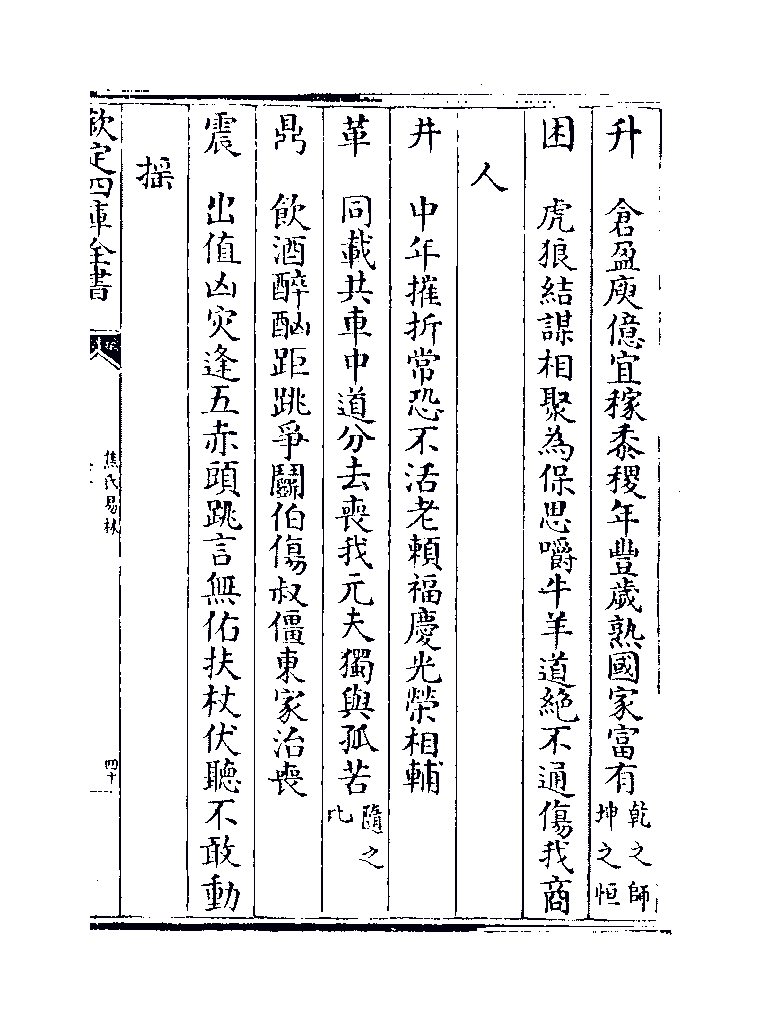 升　倉盈庾億宜稼黍稷年豐歲熟國家富有乾之師坤之恒
困　虎狼結謀相聚為保思嚼牛羊道絶不通傷我商
人
井　中年摧折常恐不活老頼福慶光榮相輔
革　同載共車中道分去喪我元夫獨與孤苦隨之比
鼎　飲酒醉酗距跳爭鬭伯傷叔僵東家治喪
震　出值凶災逢五赤頭跳言無佑扶杖伏聽不敢動
揺
欽定四庫全書
焦氏易林
四十